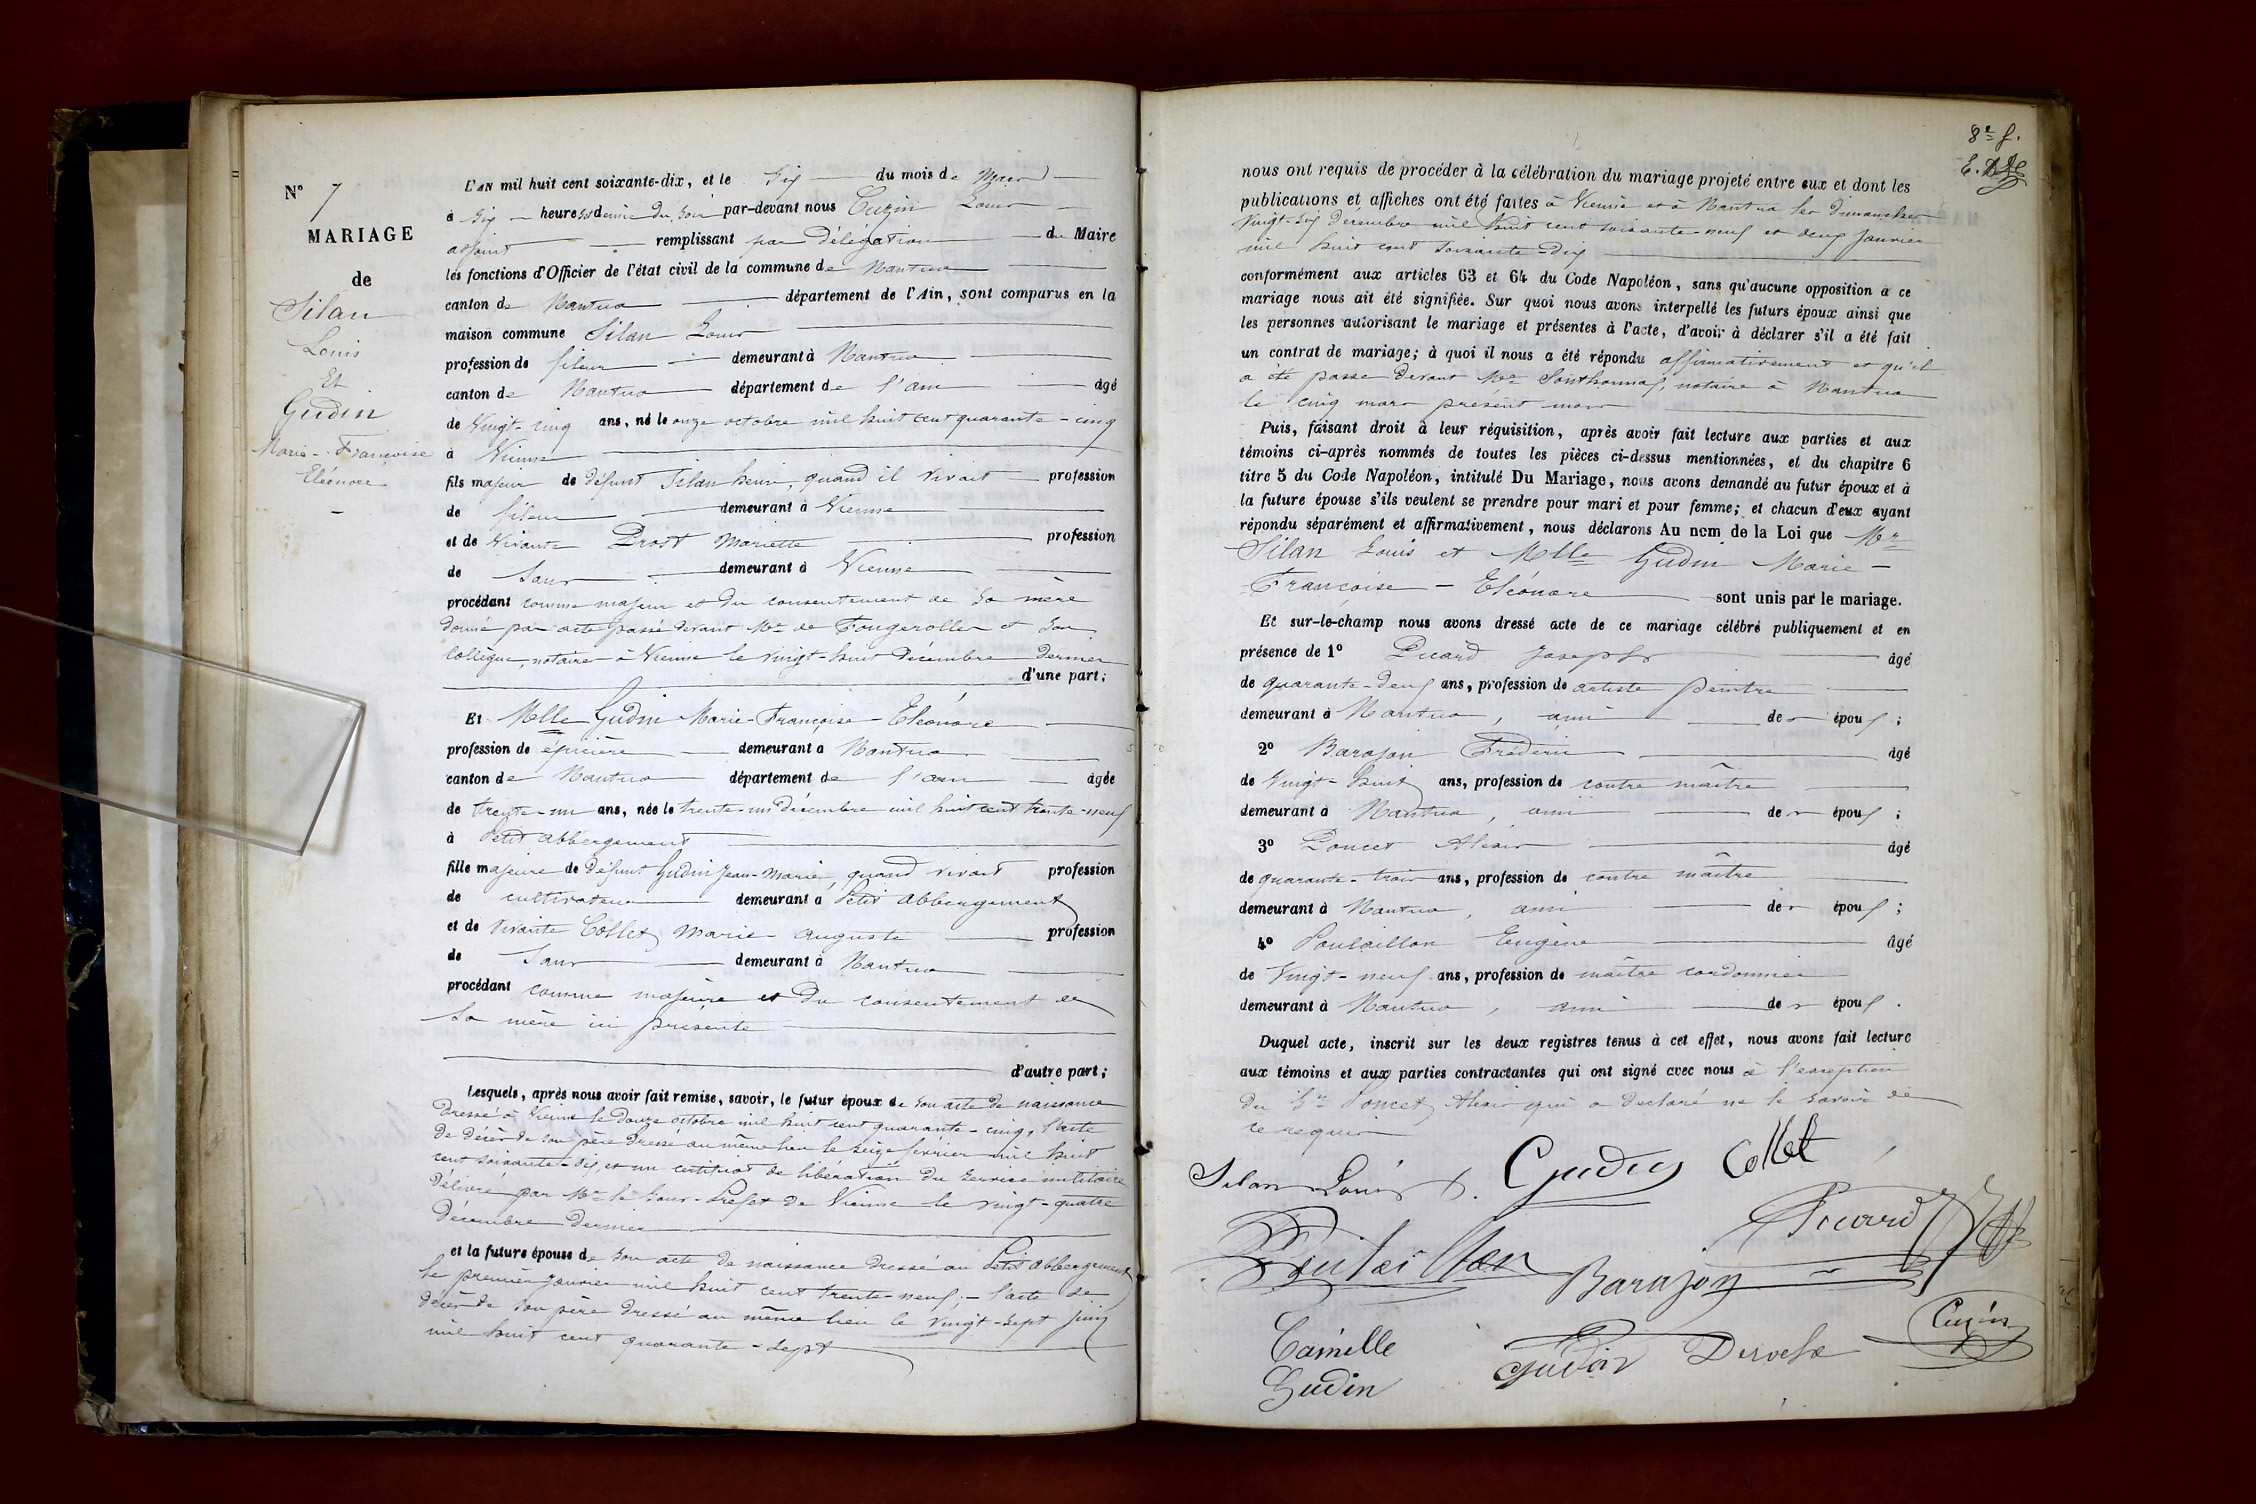 N° 7
MARIAGE
de
Silan
Louis
Et
Gudin
Marie-Françoise
Eléonore
L'AN mil huit cent soixante-dix, et le Six du mois de Mars
à Six heures et demie du soir par-devant nous Cuzin Louis
adjoint remplissant par délégation du Maire
les fonctions d'Officier de l'état civil de la commune de Nantua
canton de Nantua département de l'Ain, sont comparus en la
maison commune Silan Louis
profession de fileur demeurant à Nantua
canton de Nantua département de l'ain âgé
de Vingt-cinq ans, né le onze octobre mil huit cent quarante-cinq
à Vienne
fils majeur de défunt Silan henri, quand il vivait profession
de fileur demeurant à Vienne
et de vivante Prost Mariette profession
de Sans demeurant à Vienne
procédant comme majeur et du consentement de sa mère
donné par acte passé devant Me de Fougerolles et son
collègue, notaire à Vienne le vingt-huit décembre dernier
d'une part;
Et Melle Gudin Marie-Françoise-Eléonore
profession de épicière demeurant à Nantua
canton de Nantua département de l'ain âgée
de trente-un ans, née le trente-un décembre mil huit cent trente-neuf
à Petit abbergement
fille majeure de défunt Gudin Jean-Marie, quand vivait profession
de cultivateur demeurant à Petit abbergement
et de vivante Collet Marie-auguste profession
de Sans demeurant à Nantua
procédant comme majeure et du consentement de
sa mère ici présente
d'autre part;
Lesquels, après nous avoir fait remise, savoir, le futur époux de son acte de naissance
dressé à Vienne le douze octobre mil huit cent quarante-cinq, l'acte
de décès de son père dressé au même lieu le seize février mil huit
cent soixante-dix, et un certificat de libération du service militaire
délivré par Mr le Sous-Préfet de Vienne le vingt-quatre
décembre dernier
et la future épouse de son acte de naissance dressé au Petit abbergement
le premier janvier mil huit cent trente-neuf; l'acte de
décès de son père dressé au même lieu le vingt-sept juin
mil huit cent quarante-sept
8e f.
nous ont requis de procéder à la célébration du mariage projeté entre eux et dont les
publications et affiches ont été faites à Vienne et à Nantua les dimanches
vingt-six décembre mil huit cent soixante-neuf et deux janvier
mil huit cent soixante-dix
conformément aux articles 63 et 64 du Code Napoléon, sans qu'aucune opposition à ce
mariage nous ait été signifiée. Sur quoi nous avons interpellé les futurs époux ainsi que
les personnes autorisant le mariage et présentes à l'acte, d'avoir à déclarer s'il a été fait
un contrat de mariage; à quoi il nous a été répondu affirmativement et qu'il
a été passé devant Me Southonnax, notaire à Nantua
le cinq mars présent mois
Puis, faisant droit à leur réquisition, après avoir fait lecture aux parties et aux
témoins ci-après nommés de toutes les pièces ci-dessus mentionnées, et du chapitre 6
titre 5 du Code Napoléon, intitulé Du Mariage, nous avons demandé au futur époux et à
la future épouse s'ils veulent se prendre pour mari et pour femme; et chacun d'eux ayant
répondu séparément et affirmativement, nous déclarons Au nom de la Loi que Mr
Silan Louis et Melle Gudin Marie-
Françoise-Eléonore sont unis par le mariage.
Et sur-le-champ nous avons dressé acte de ce mariage célébré publiquement et en
présence de 1° Picard Joseph âgé
de quarante-deux ans, profession de artiste peintre
demeurant à Nantua, ami des époux;
2° Barajon Frédéric âgé
de Vingt-huit ans, profession de contre maître
demeurant à Nantua, ami des époux;
3° Poncet Alexis âgé
de quarante-trois ans, profession de contre maître
demeurant à Nantua, ami des époux;
4° Poulaillon Eugène âgé
de Vingt-neuf ans, profession de maître cordonnier
demeurant à Nantua, ami des époux.
Duquel acte, inscrit sur les deux registres tenus à cet effet, nous avons fait lecture
aux témoins et aux parties contractantes qui ont signé avec nous à l'exception
du Sr Poncet Alexis qui a déclaré ne le savoir de
ce requis
Silan Louis Gudin Collet
Picard
Poulaillon Barajon
Camille Gudin Cuzin
Gudin